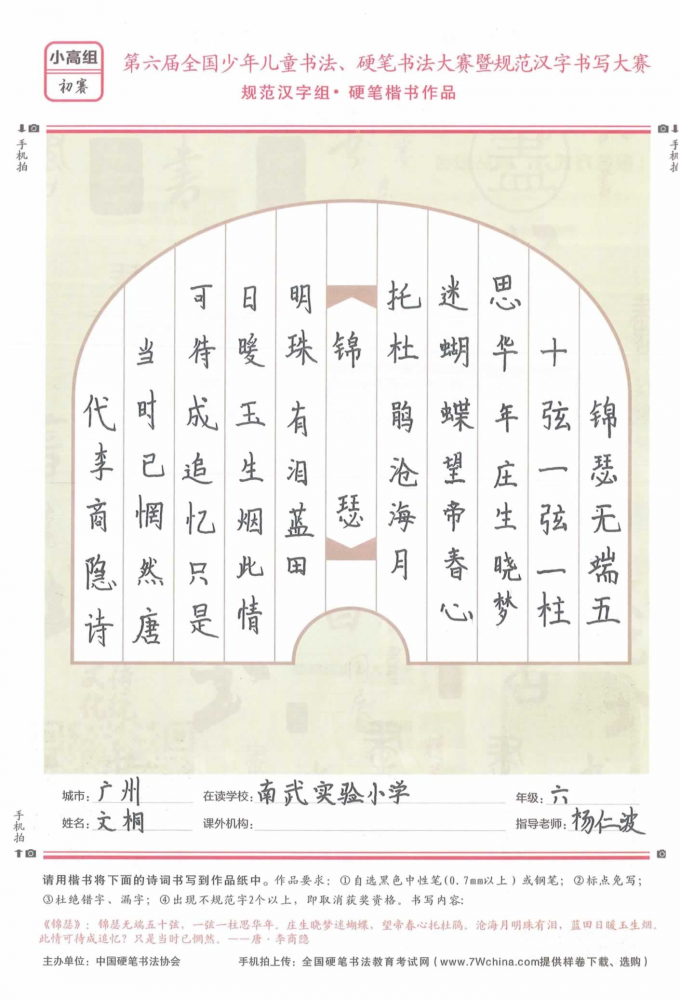 小高组
初赛
第六届全国少年儿童书法、硬笔书法大赛暨规范汉字书写大赛
规范汉字组·硬笔楷书作品
手机拍
手机拍
锦瑟无端五
十弦一弦一柱
思华年庄生晓梦
迷蝴蝶望帝春心
托杜鹃沧海月
锦瑟
明珠有泪蓝田
日暖玉生烟此情
可待成追忆只是
当时已惘然唐
代李商隐诗
城市：广州 在读学校：南武实验小学 年级：六
姓名：文桐 课外机构： 指导老师：杨仁波
手机拍
请用楷书将下面的诗词书写到作品纸中。作品要求：①自选黑色中性笔(0.7mm以上)或钢笔；②标点免写；
③杜绝错字、漏字；④出现不规范字2个以上，即取消获奖资格。书写内容：
《锦瑟》：锦瑟无端五十弦，一弦一柱思华年。庄生晓梦迷蝴蝶，望帝春心托杜鹃。沧海月明珠有泪，蓝田日暖玉生烟。
此情可待成追忆？只是当时已惘然。——唐·李商隐
主办单位：中国硬笔书法协会 手机拍上传：全国硬笔书法教育考试网（www.7Wchina.com提供样卷下载、选购）